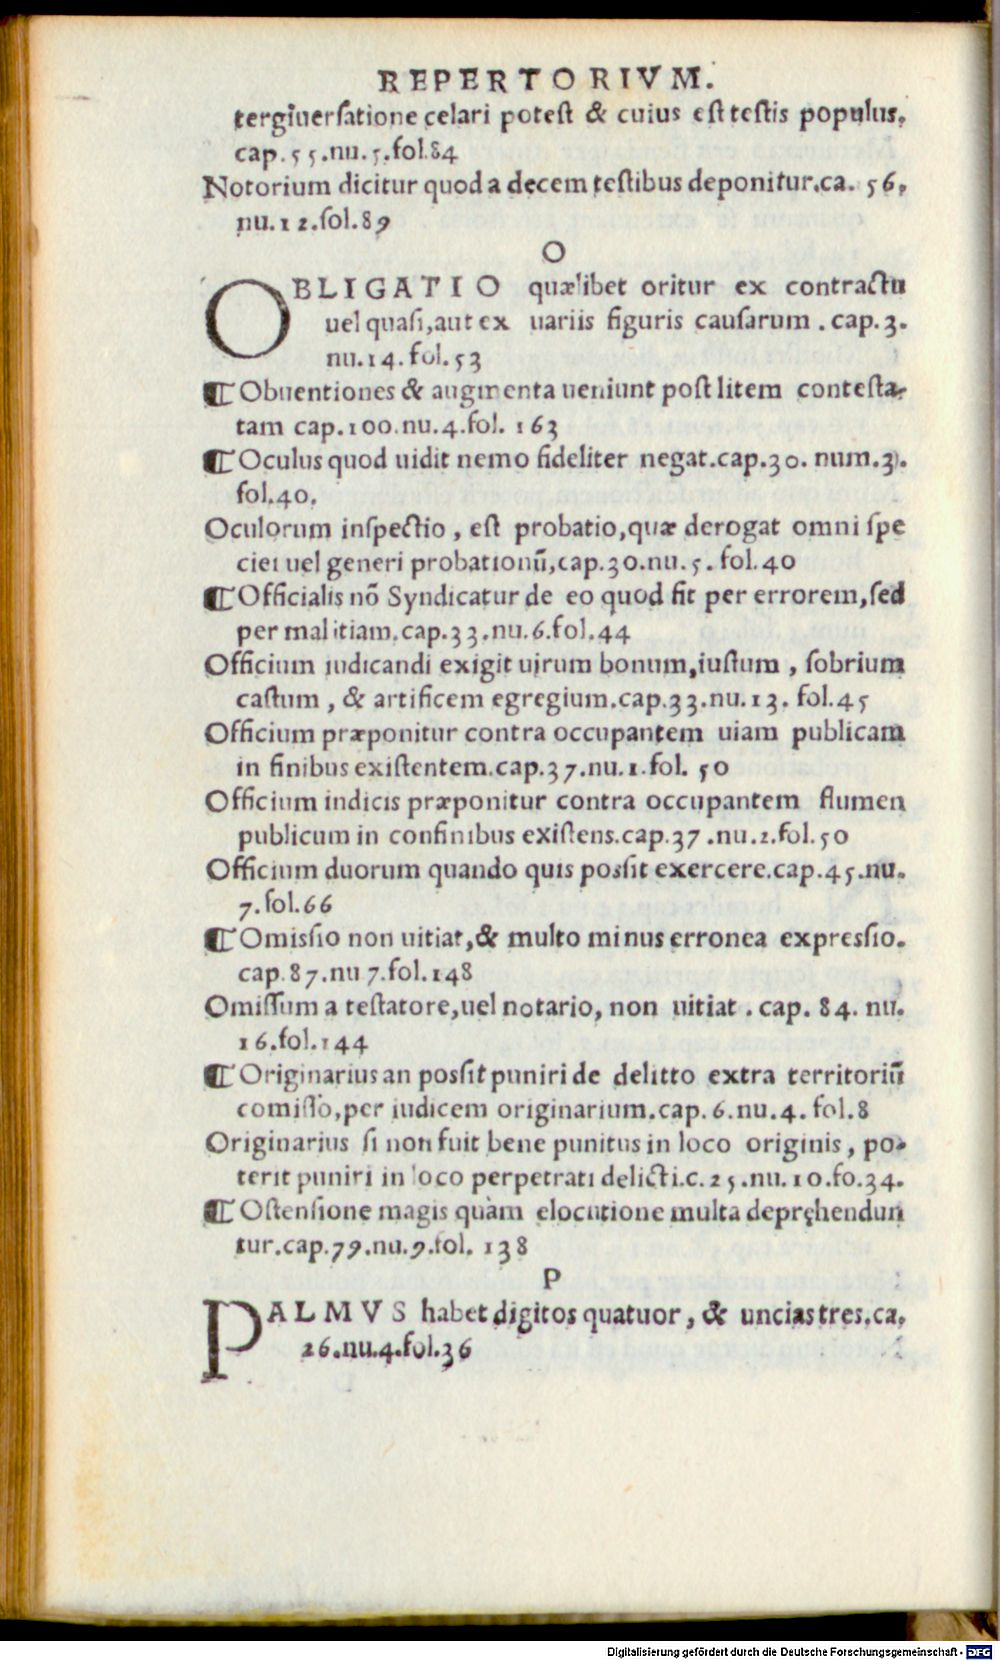 REPERTORIVM.
tergiuersatione celari potest & cuius est testis populus.
cap.55.nu.5.fol.84
Notorium dicitur quod a decem testibus deponitur.ca. 56.
nu.12.fol.89
O
OBLIGATIO quælibet oritur ex contractu
uel quasi,aut ex uariis figuris causarum . cap.3.
nu.14.fol.53
¶ Obuentiones & augmenta ueniunt post litem contesta-
tam cap.100.nu.4.fol. 163
¶ Oculus quod uidit nemo fideliter negat.cap.30. num.3.
fol.40.
Oculorum inspectio , est probatio,quæ derogat omni spe
ciei uel generi probationū,cap.30.nu.5. fol.40
¶ Officialis nō Syndicatur de eo quod fit per errorem,sed
per malitiam.cap.33.nu.6.fol.44
Officium iudicandi exigit uirum bonum,iustum , sobrium
castum , & artificem egregium.cap.33.nu.13. fol.45
Officium præponitur contra occupantem uiam publicam
in finibus existentem.cap.37.nu.1.fol. 50
Officium iudicis præponitur contra occupantem flumen
publicum in confinibus existens.cap.37 .nu.2.fol.50
Officium duorum quando quis possit exercere.cap.45.nu.
7.fol.66
¶ Omissio non uitiat,& multo minus erronea expressio.
cap.87.nu 7.fol.148
Omissum a testatore,uel notario, non uitiat . cap. 84. nu.
16.fol.144
¶ Originarius an possit puniri de delitto extra territoriū
comisso,per iudicem originarium.cap.6.nu.4. fol.8
Originarius si non fuit bene punitus in loco originis , po-
terit puniri in loco perpetrati delicti.c.25.nu.10.fo.34.
¶ Ostensione magis quàm elocutione multa depręhendun
tur.cap.79.nu.9.fol. 138
P
PALMVS habet digitos quatuor , & uncias tres.ca.
26.nu.4.fol.36
Digitalisierung gefördert durch die Deutsche Forschungsgemeinschaft - DFG